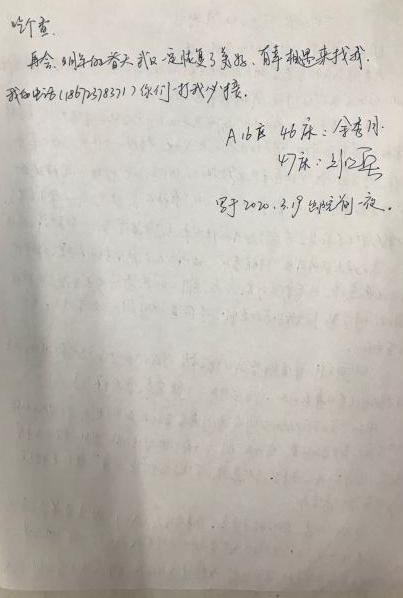 吃个煮.
再会.明年的春天我们一定恢复了美好.有幸相遇来找我.
我的电话(18672378371)你们一打我必接.
A16店 46床:余杏月
47床:刘
写于2020.3.19出院前一夜.